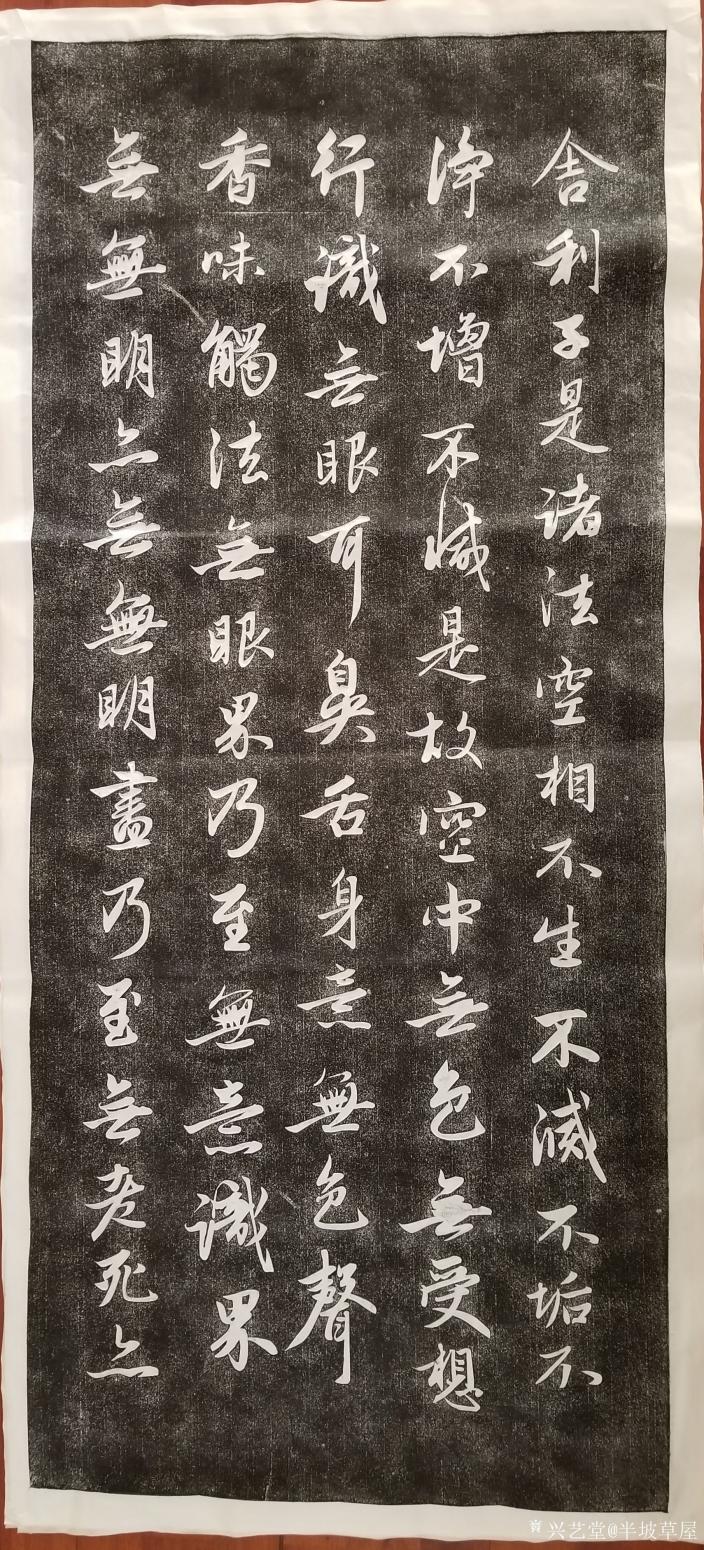 舍利子是诸法空相不生不滅不垢不
淨不增不減是故空中無色無受想
行識無眼耳鼻舌身意無色聲
香味觸法無眼界乃至無意識界
無無明亦無無明盡乃至無老死亦
兴艺堂@半坡草屋